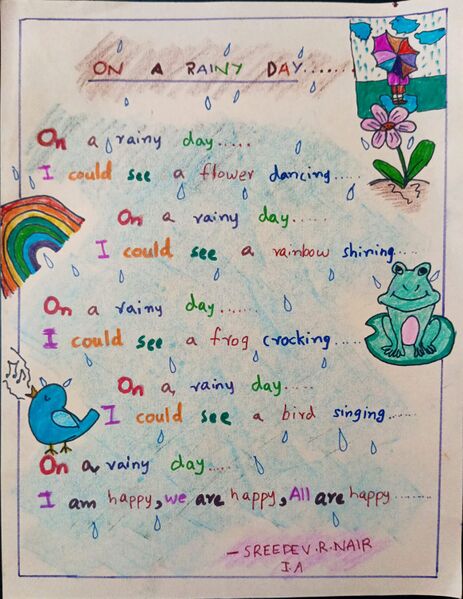 ON A RAINY DAY......
On a rainy day.....
I could see a flower dancing.....
On a rainy day.....
I could see a rainbow shining....
On a rainy day.......
I could see a frog crocking.....
On a rainy day.....
I could see a bird singing......
On a rainy day.....
I am happy, we are happy, All are happy........
- SREEDEV.R.NAIR
I.A